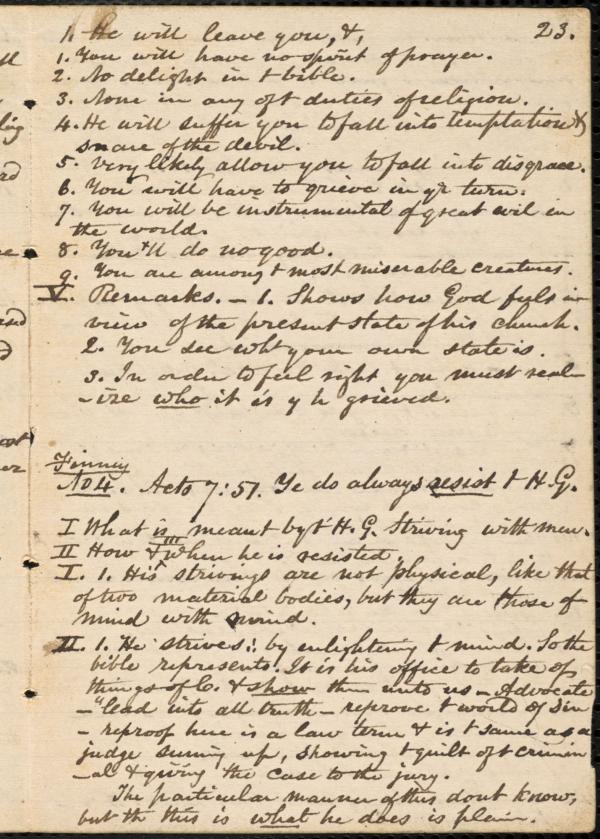 23.
1. He will leave you, &,
1. You will have no spirit of prayer.
2. No delight in t bible.
3. None in any of t duties of religion.
4. He will suffer you to fall into temptation &
snare of the devil.
5. Very likely allow you to fall into disgrace.
6. You will have to grieve in yr turn.
7. You will be instrumental of great evil in
the world.
8. You'll do no good.
9. You are among t most miserable creatures.
V. Remarks. – 1. Shows how God feels in
view of the present state of his church.
2. You see wht your own state is.
3. In order to feel right you must real-
-ize who it is y h grieved.
Finney
No 4. Acts 7:51. Ye do always resist t H. G.
I What is meant by t H. G. Striving with men.
II How & when he is resisted.
III
I. 1. His strivings are not physical, like that
of two material bodies, but they are those of
mind with mind.
II. 1. He strives: by enlightening t mind. So the
bible represents. It is his office to take of
things of C. & show them unto us – Advocate
– "lead into all truth – reprove t world of sin
– reproof here is a law term & is t same as a
judge suming up, showing t guilt of t crimin
-al & giving the case to the jury.
The particular manner of this dont know,
but th this is what he does is plain.